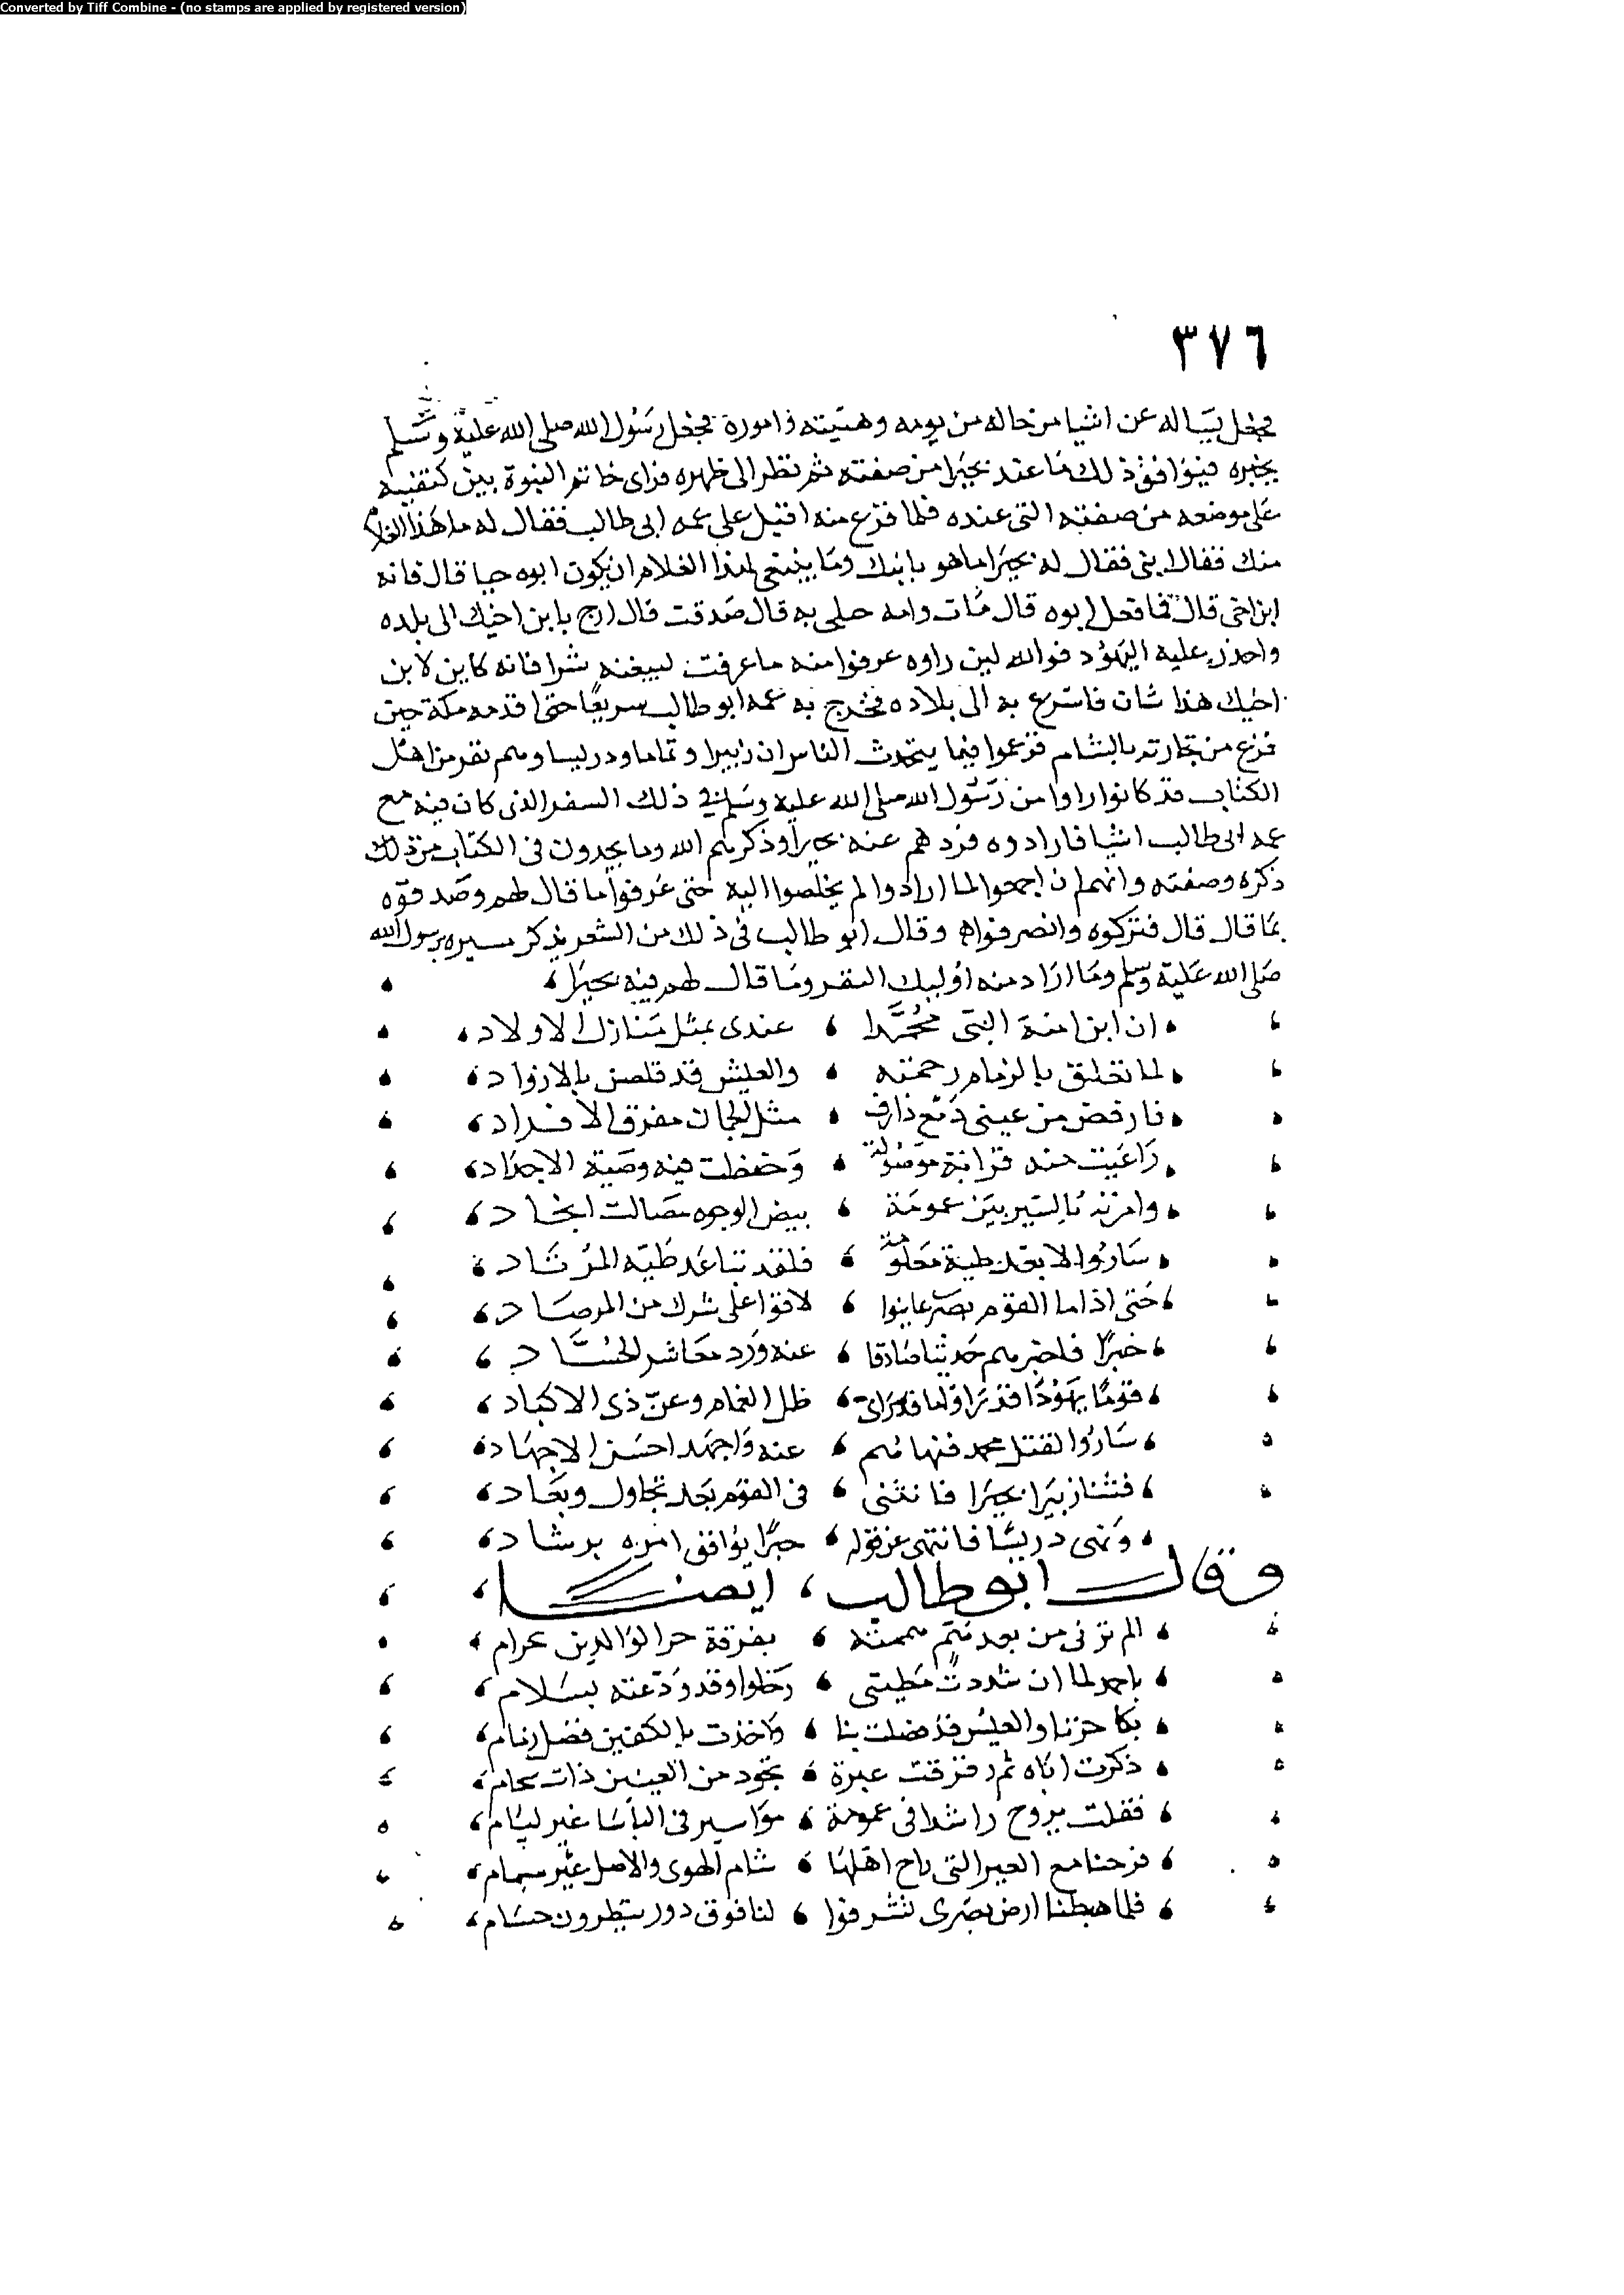 Converted by Tiff Combine - (no stamps are applied by registered version)
٣٧٦
فجعل يساله عن اشيا من حاله من يومه وهيئته واموره فجعل رسول الله صلى الله عليه وسلم
يخبره فيوافق ذلك ما عند بحيرا من صفته ثم نظر الى ظهره فراى خاتم النبوة بين كتفيه
على موضعه من صفته التى عنده فلما فرع منه اقبل على عمه ابى طالب فقال له ما هذا الغلام
منك فقال ابنى فقال له بحيرا ما هو بابنك وما ينبغى لهذا الغلام ان يكون ابوه حيا قال فانه
ابن اخى قال فما فعل ابوه قال مات وامه حبلى به قال صدقت قال ارجع بابن اخيك الى بلده
واحذر عليه اليهود فوالله لين راوه عرفوا منه ما عرفت ليبغنه شرا فانه كاين لابن
اخيك هذا شان فاسرع به الى بلاده فخرج به عمه ابو طالب سريعا حتى اقدمه مكة حين
فرع من تجارته بالشام فزعموا فيما يتحدث الناس ان زبيرا وتماما ودريسا وهم نفر من اهل
الكتاب قد كانوا راوا من رسول الله صلى الله عليه وسلم فى ذلك السفر الذى كان فيه مع
عمه ابى طالب اشيا فارادوه فردهم عنه بحيرا وذكرهم الله وما يجدون فى الكتاب من ذلك
ذكره وصفته وانهم ان اجمعوا لما ارادوا لم يخلصوا اليه حتى عرفوا ما قال لهم وصدقوه
بما قال قال فتركوه وانصرفوا وقال ابو طالب فى ذلك من الشعر يذكر مسيره برسول الله
صلى الله عليه وسلم وما اراد منه اوليك النفر وما قال لهم فيه بحيرا
ان ابن امنة النبى محمدا ، عندى بمثل منازل الاولاد
لما تعلق بالزمام رحمته ، والعيش قد قلصن بالازواد
فارفض من عينى دمع ذارف ، مثل الجمان مفرق الافراد
راعيت منه قرابة موصولة ، وحفظت فيه وصية الاجداد
وامرته بالسير بين عمومة ، بيض الوجوه مصالت انجاد
ساروا لابعد طية معلومة ، فلقد تباعد طية المرتاد
حتى اذا ما القوم بصرى عاينوا ، لاقوا على شرك من المرصاد
حبرا فاخبرهم حديثا صادقا ، عنه ورد معاشر الحساد
قوما يهودا قد راوا لما قد راى ، ظل الغمام وعن ذى الاكباد
ساروا لقتل محمد فنهاهم ، عنه واجهد احسن الاجهاد
فثنا زبيرا بحيرا فانثنى ، فى القوم بعد تجاول وبعاد
ونهى دريسا فانتهى عن قوله ، حبرا يوافق امره برشاد
وقال ابو طالب ايضا
الم ترنى من بعد هم هممته ، بفرقة حر الوالدين حرام
باحمد لما ان شددت مطيتى ، رحلوا وقد ودعته بسلام
بكا حزنا والعيس قد فصلت بنا ، واخذت بالكفين فضل زمام
ذكرت اباه ثم رقرقت عبرة ، تجود من العينين ذات سجام
فقلت يروح راشدا فى عمومة ، مواسير فى الباسا غير ليام
فرحنا مع العير التى راح اهلها ، شام الهوى والاصل غير سهام
فلما هبطنا ارض بصرى تشرفوا ، لنا فوق دور ينظرون حسام